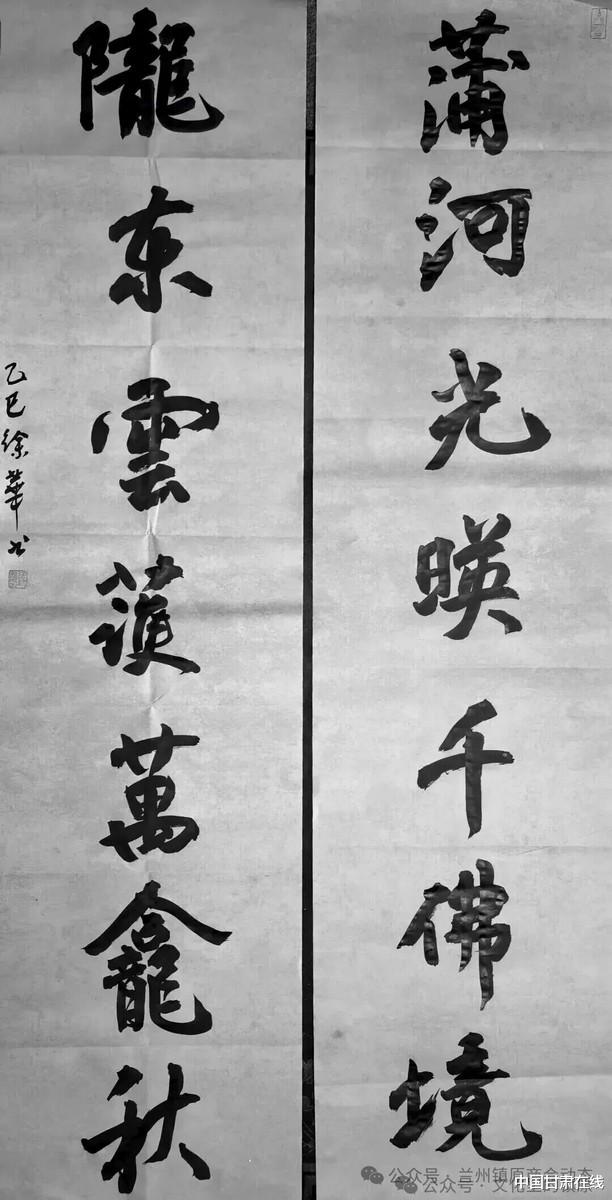 蒲河光暎千佛境
隴东雲護萬龕秋
乙巳徐華书
公众号·兰州镇原商会动态
公众号·文
中国甘肃在线